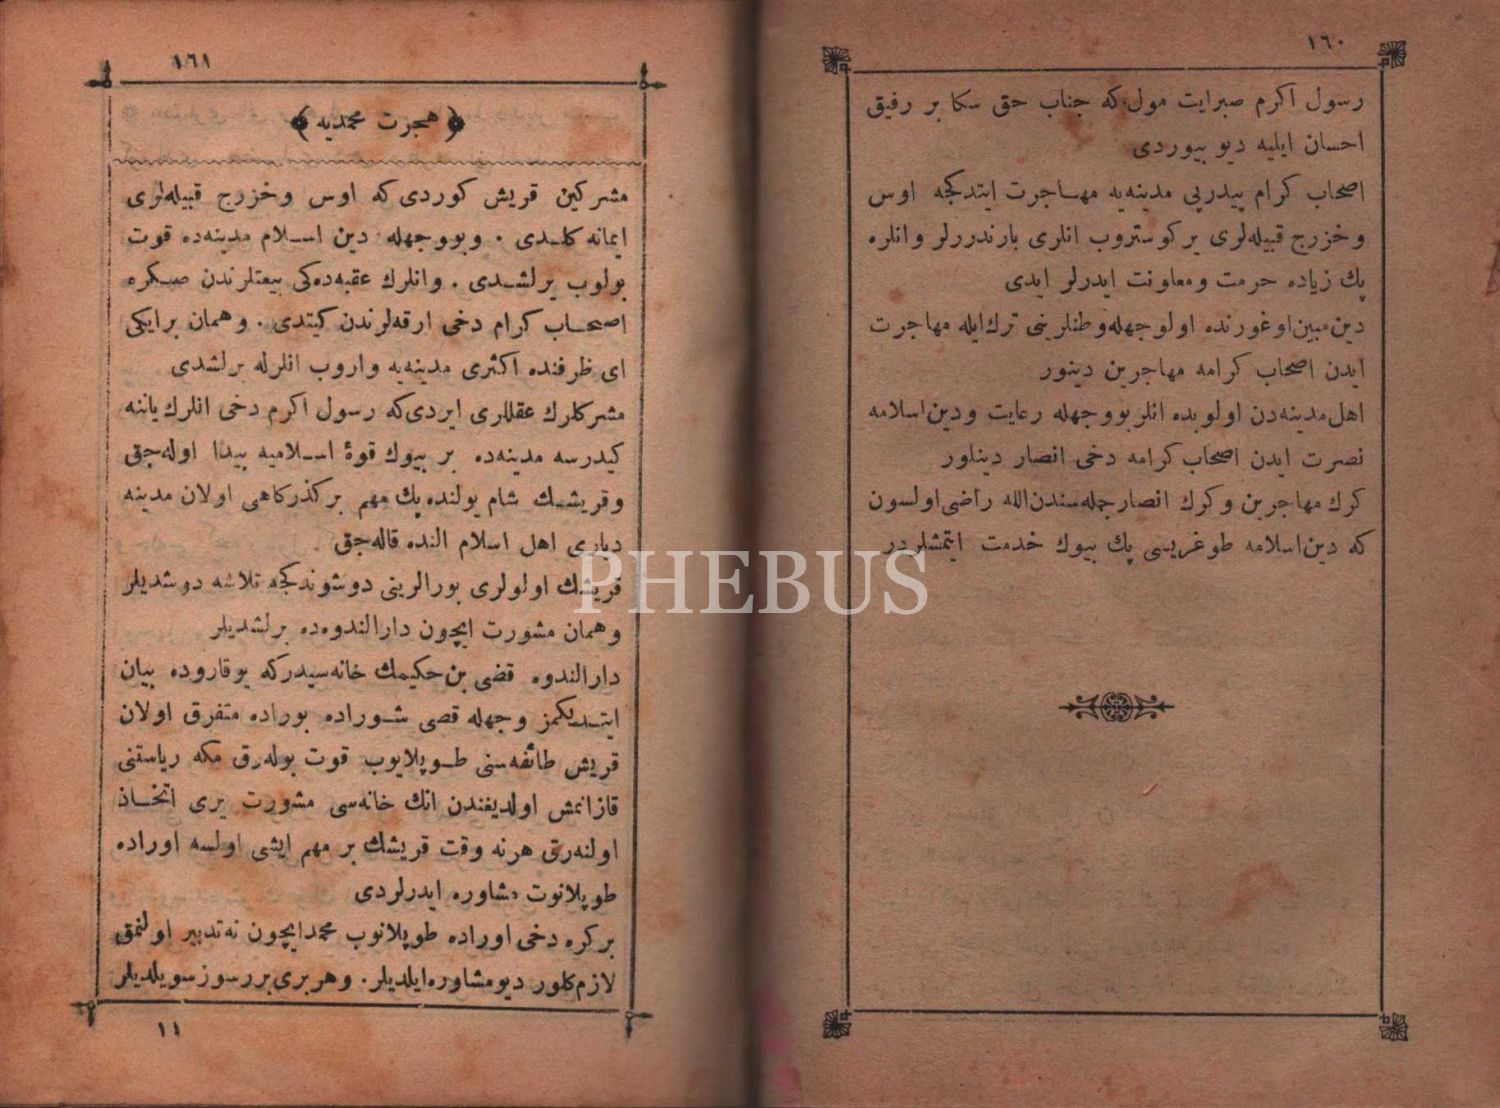 ١٦٠
رسول اكرم صبرايت مولكه جناب حق سكا بر رفيق
احسان ايليه ديو بيوردى
اصحاب كرام پيدرپى مدينه‌يه مهاجرت ايتدكجه اوس
وخزرج قبيله‌لرى ير كوستروب انلرى بارندررلر وانلره
پك زياده حرمت ومعاونت ايدرلر ايدى
دين مبين اوغورنده اولوجهله وطنلرينى ترك ايله مهاجرت
ايدن اصحاب كرامه مهاجرين دينور
اهل مدينه‌دن اولوبده انلر بووجهله رعايت ودين اسلامه
نصرت ايدن اصحاب كرامه دخى انصار دينلور
كرك مهاجرين وكرك انصار جمله‌سندن الله راضى اولسون
كه دين اسلامه طوغريسى پك بيوك خدمت ايتمشلردر
١٦١
﴿ هجرت محمديه ﴾
مشركين قريش كوردى كه اوس وخزرج قبيله‌لرى
ايمانه كلدى . وبووجهله دين اسلام مدينه‌ده قوت
بولوب يرلشدى . وانلرك عقبه‌ده‌كى بيعتلرندن صكره
اصحاب كرام دخى ارقه‌لرندن كيتدى . وهمان برايكى
اى ظرفنده اكثرى مدينه‌يه واروب انلرله برلشدى
مشركلرك عقللرى ايردى كه رسول اكرم دخى انلرك ياننه
كيدرسه مدينه‌ده بر بيوك قوۀ اسلاميه پيدا اوله‌جق
وقريشك شام يولنده پك مهم بركذركاهى اولان مدينه
ديارى اهل اسلام النده قاله‌جق
قريشك اولولرى بورالرينى دوشوندكجه تلاشه دوشديلر
وهمان مشورت ايچون دارالندوه‌ده برلشديلر
دارالندوه قضى بن حكيمك خانه‌سيدركه يوقاروده بيان
ايتديكمز وجهله قصى شوراده بوراده متفرق اولان
قريش طائفه‌سنى طوپلايوب قوت بوله‌رق مكه رياستنى
قازانمش اولديغندن انك خانه‌سى مشورت يرى اتخاذ
اولنه‌رق هرنه وقت قريشك بر مهم ايشى اولسه اوراده
طوپلانوت مشاوره ايدرلردى
بركره دخى اوراده طوپلانوب محمدايچون نه تدبير اولنمق
لازم كلور ديو مشاوره ايلديلر . وهربرى بررسوز سويلديلر
١١
PHEBUS